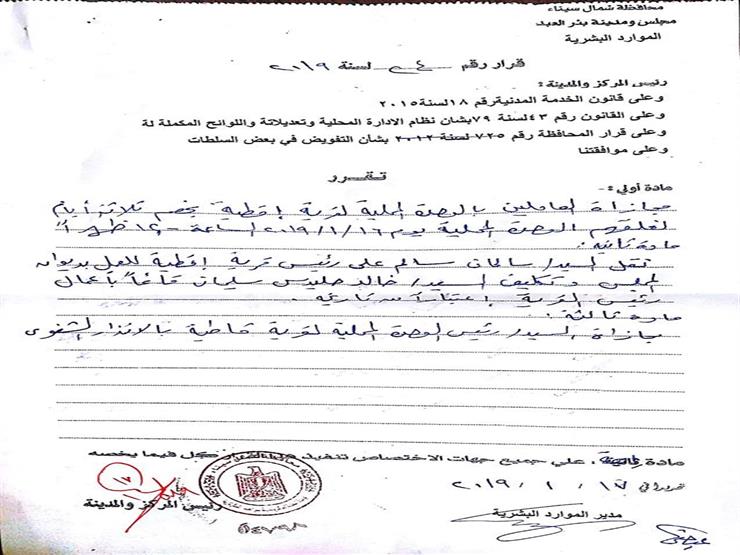 محافظة شمال سيناء
مجلس ومدينة بئر العبد
الموارد البشرية
قرار رقم ٤٣ لسنة ٢٠١٩
رئيس المركز والمدينة :
وعلى قانون الخدمة المدنية رقم ١٨ لسنة ٢٠١٥
وعلى القانون رقم ٤٣ لسنة ٧٩ بشان نظام الادارة المحلية وتعديلاتة واللوائح المكملة لة
وعلى قرار المحافظة رقم ٧٢٥ لسنة ٢٠١٢ بشأن التفويض في بعض السلطات
وعلى موافقتنا
تقرر
مادة أولي :-
مجازاة العاملين بالوحدة المحلية لقرية إقطية بخصم ثلاثة أيام
لغلقهم الوحدة المحلية يوم ٢٠١٩/١/١٦ الساعة ١٢ ظهراً
مادة ثانية :
نقل السيد/ سالمان سالم على رئيس قرية إقطية للعمل بديوان
المجلس وتكليف السيد/ خالد سليمان قائماً بأعمال
رئيس القرية إعتباراً من تاريخه .
مادة ثالثة :
جازاة السيد/ رئيس الوحدة المحلية لقرية قاطية بالانذار الشفوى
مادة علي جميع جهات الاختصاص تنفيذ كل فيما يخصه
تحريرا في ١٧ / ١ / ٢٠١٩
رئيس المركز والمدينة
مدير الموارد البشرية